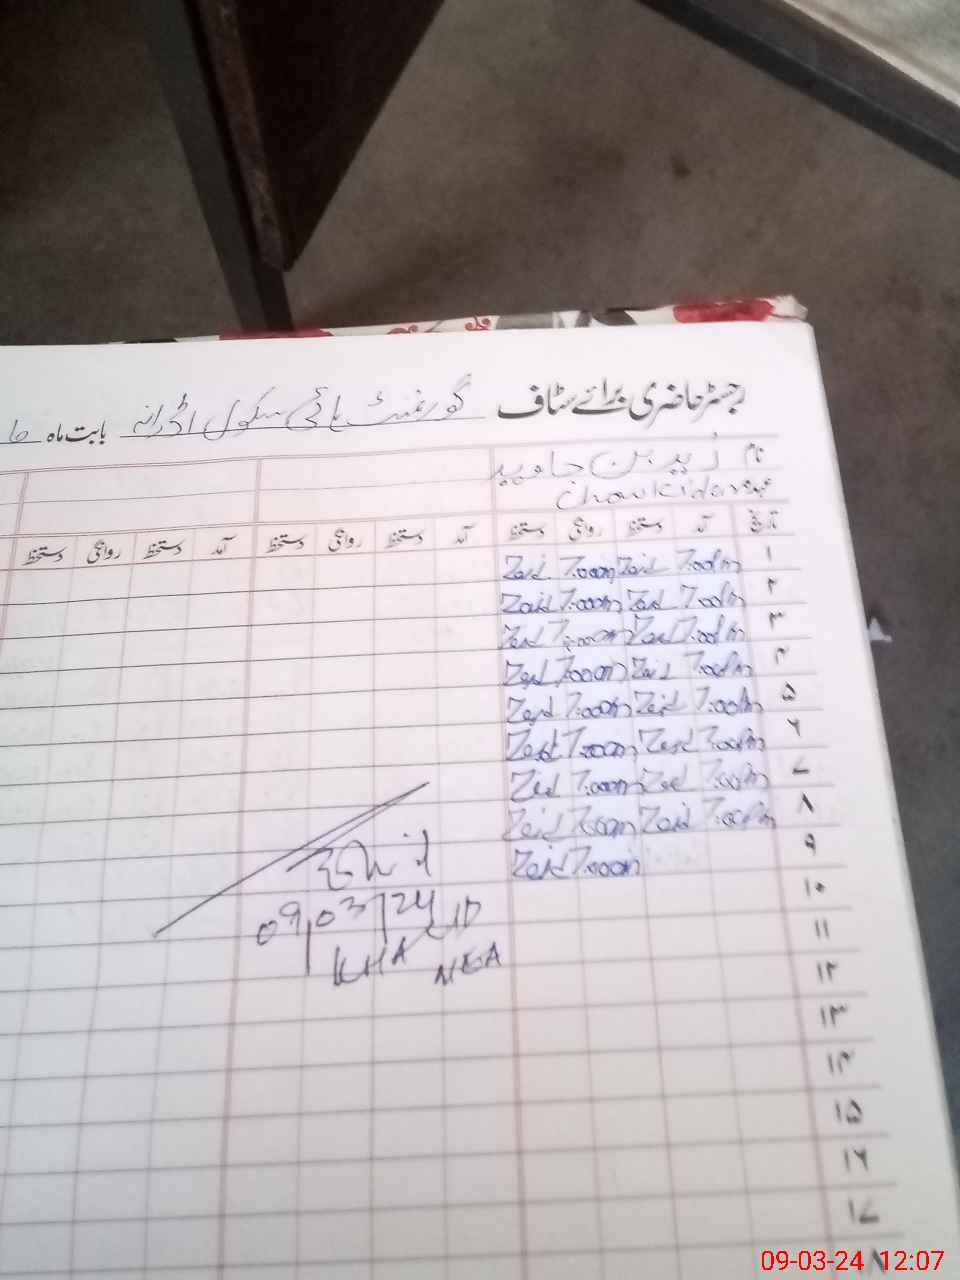 رجسٹر حاضری برائے سٹاف گورنمنٹ ہائی سکول اڈرانہ بابت ماہ
نام زید بن جاوید
عہدہ Chowkidar
تاریخ آمد دستخط روانگی دستخط آمد دستخط روانگی دستخط آمد دستخط روانگی دستخط
۱ 7:00Pm Zaid 7:00am Zaid
۲ 7:00Pm Zaid 7:00am Zaid
۳ 7:00Pm Zaid 7:00am Zaid
۴ 7:00Pm Zaid 7:00am Zaid
۵ 7:00Pm Zaid 7:00am Zaid
۶ 7:00Pm Zaid 7:00am Zaid
۷ 7:00Pm Zaid 7:00am Zaid
۸ 7:00Pm Zaid 7:00am Zaid
۹ 7:00am Zaid
۱۰
09/03/24
۱۱
KHALID
MEA
۱۲
۱۳
۱۴
۱۵
۱۶
۱۷
09-03-24 12:07